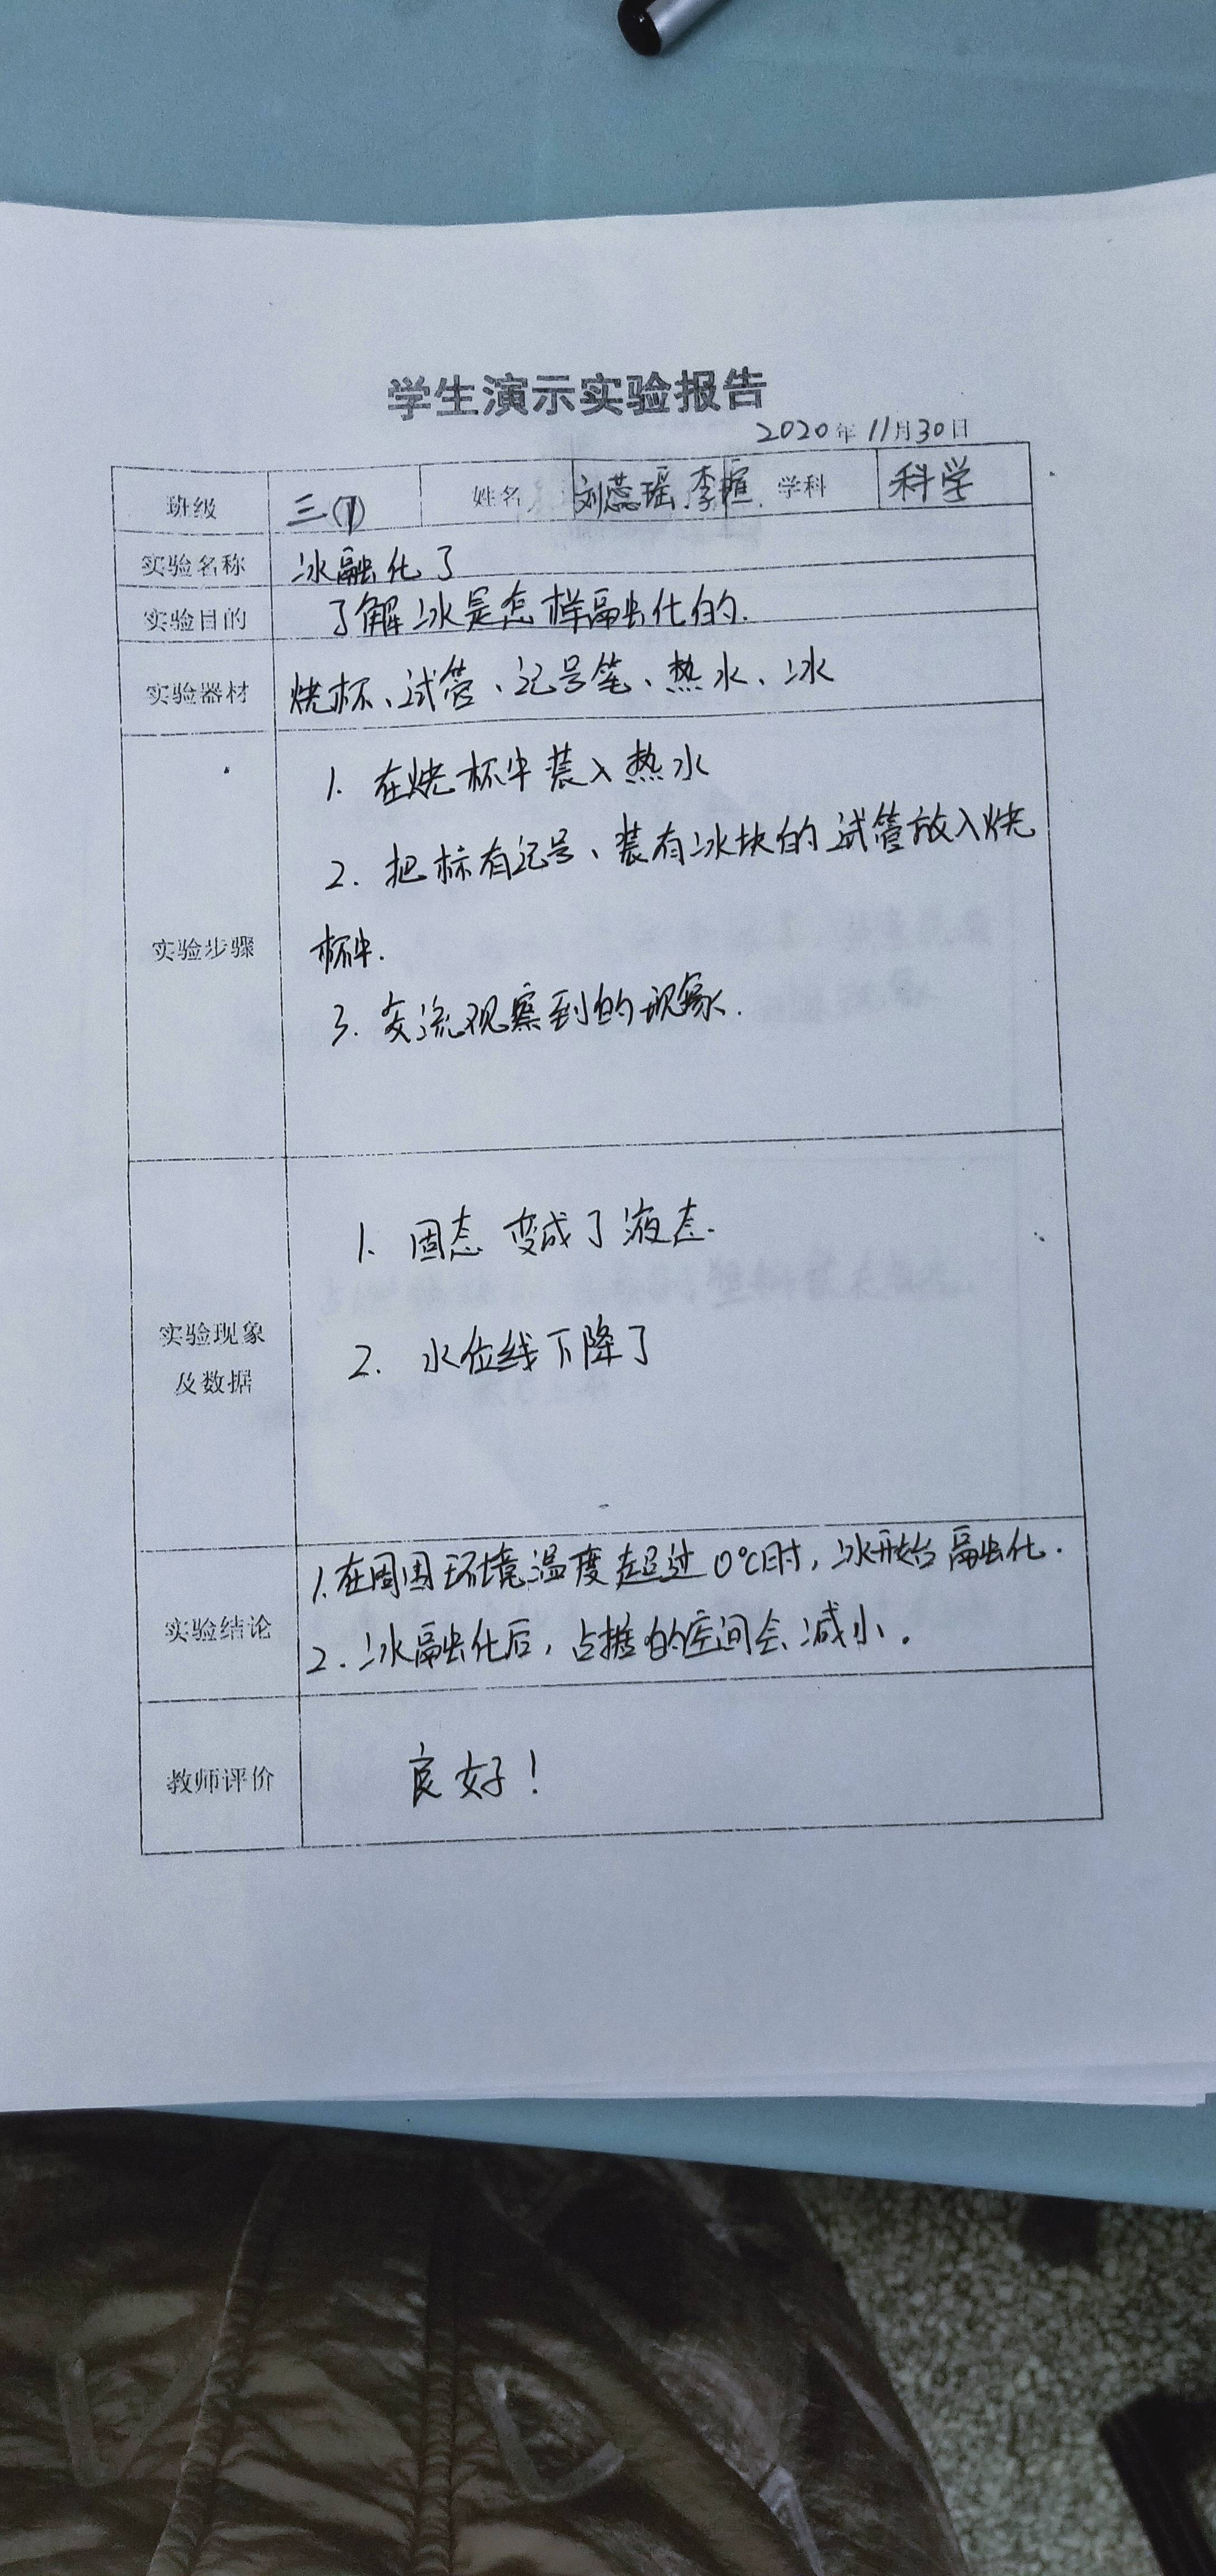 学生演示实验报告
2020年11月30日
班级 三(1) 姓名 刘蕊瑶 李楦 学科 科学
实验名称 冰融化了
实验目的 了解冰是怎样融化的.
实验器材 烧杯、试管、记号笔、热水、冰
1. 在烧杯中装入热水
2. 把标有记号、装有冰块的试管放入烧
实验步骤 杯中.
3. 交流观察到的现象.
1. 固态变成了液态.
实验现象
及数据
2. 水位线下降了
1.在周围环境温度超过0℃时,冰开始融化.
实验结论
2.冰融化后,占据的空间会减小。
教师评价 良好!